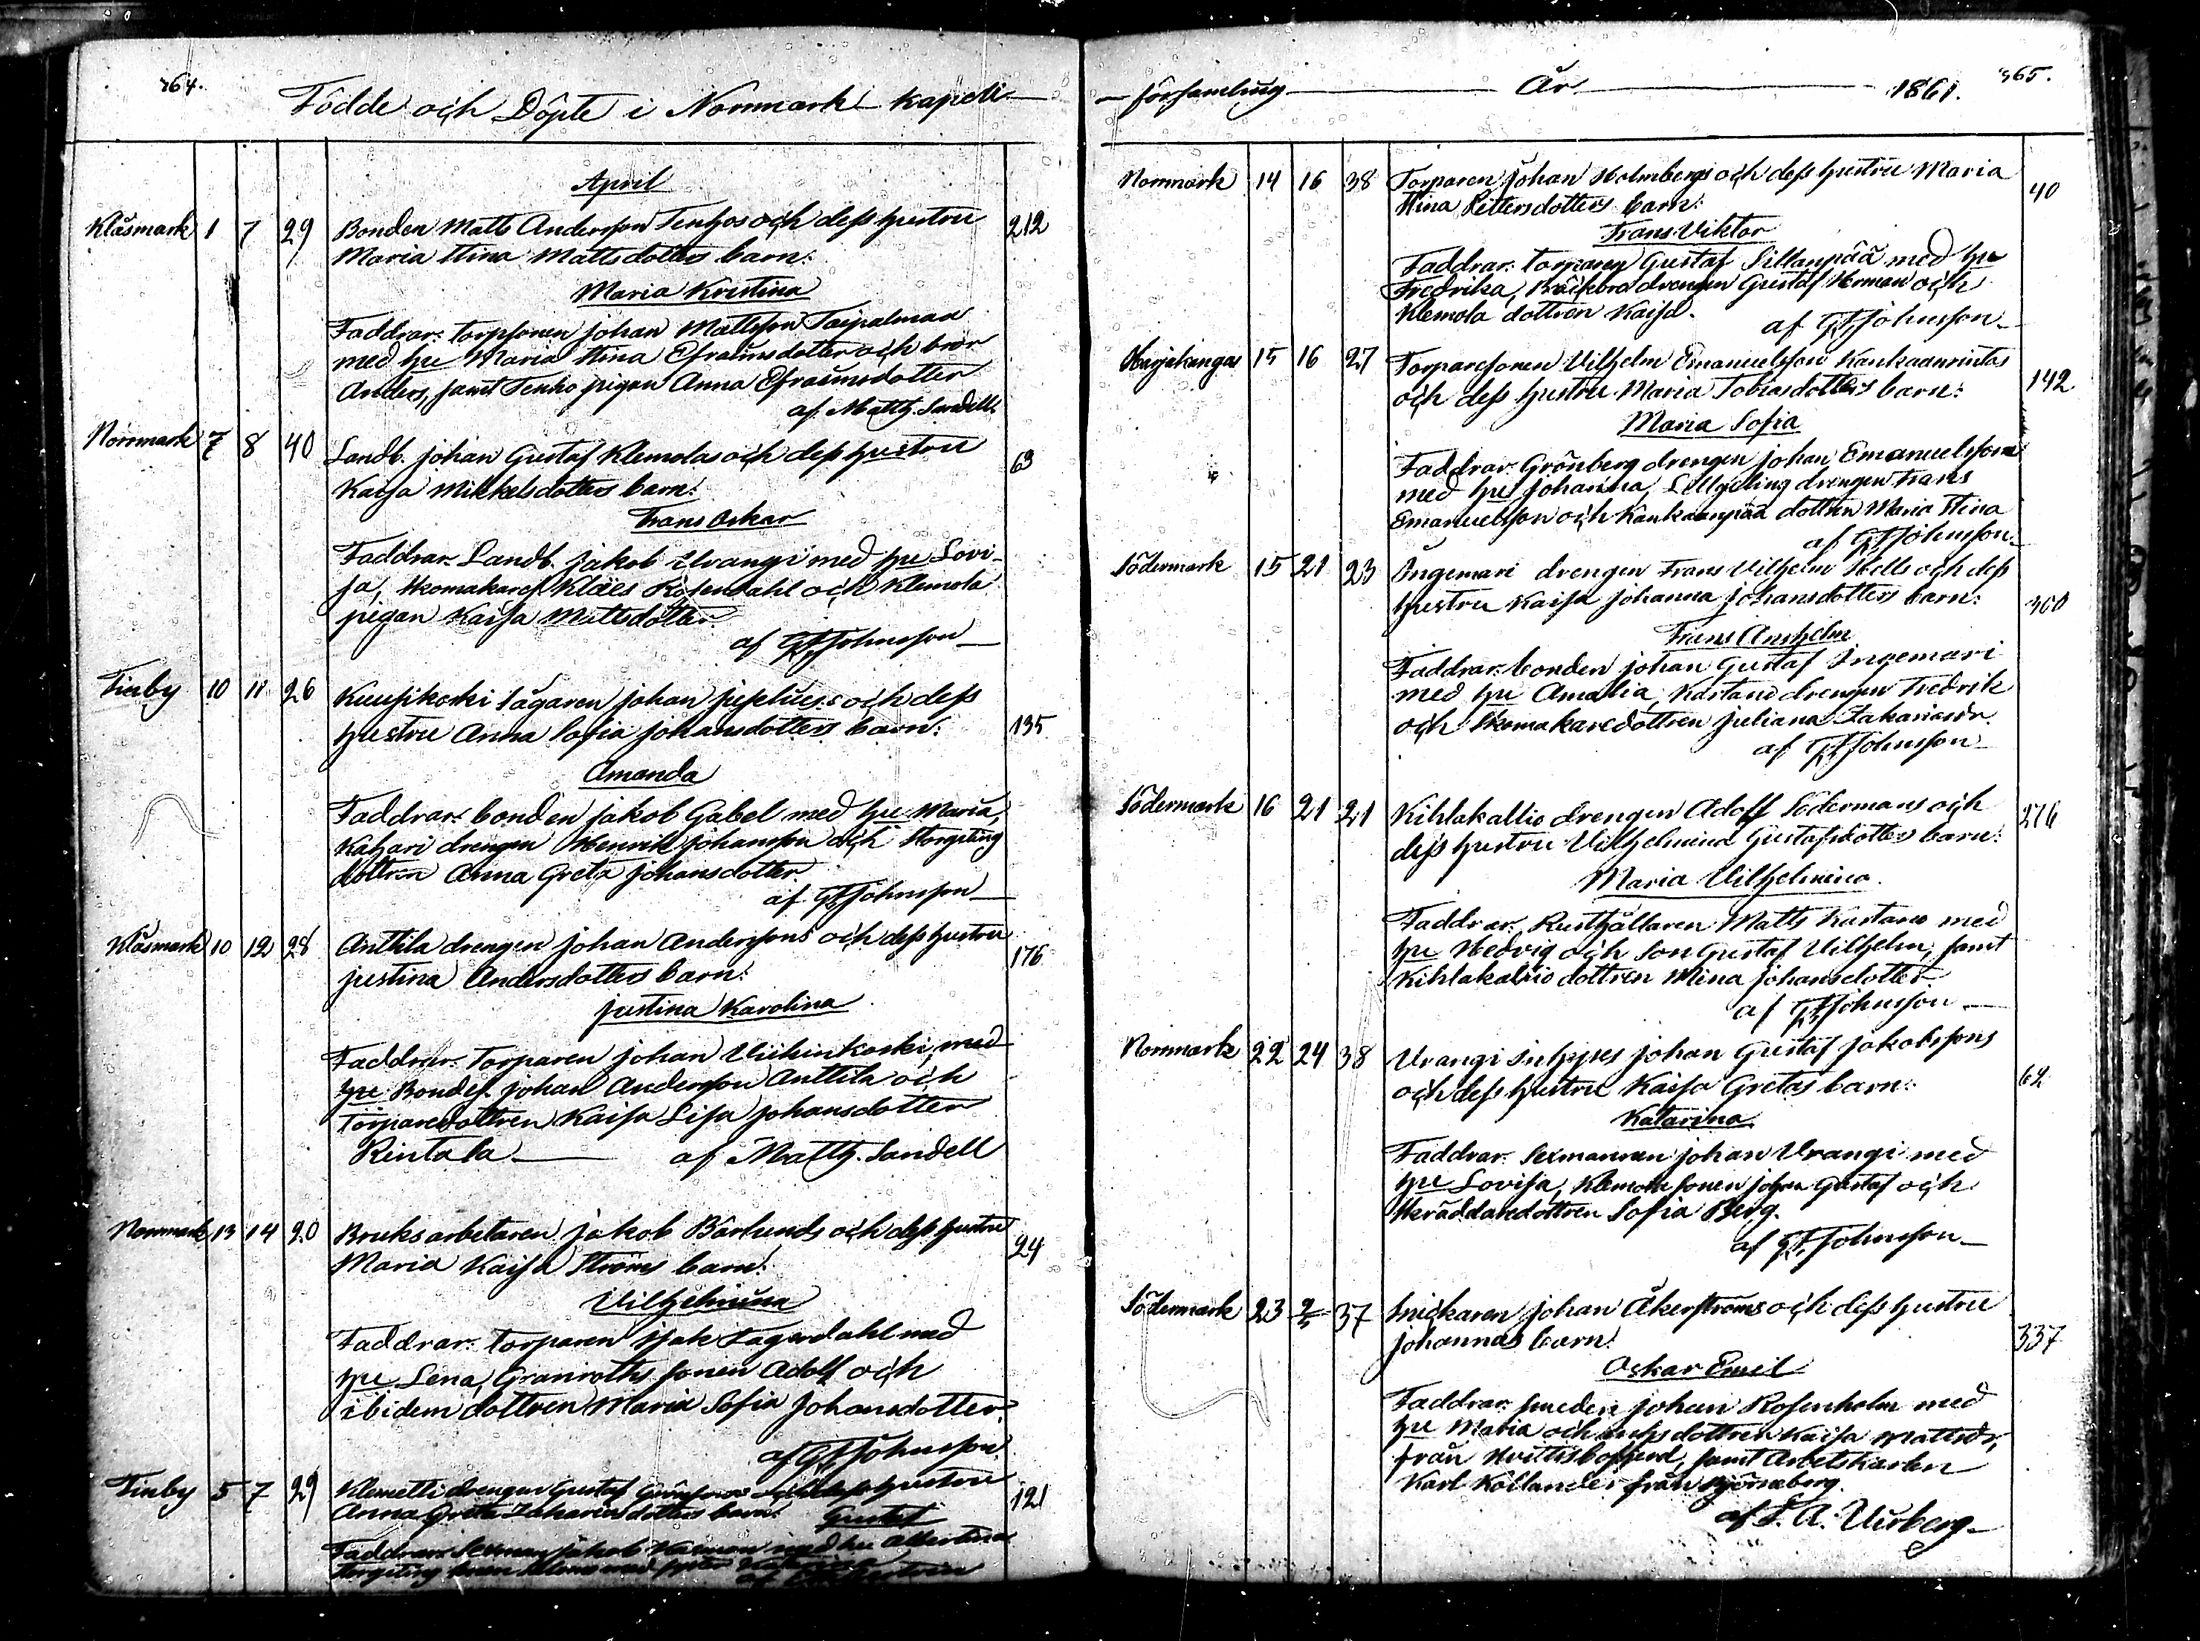 364.
Födde och Döpte i Norrmark kapell
April
Klåsmark 1 7 29 Bonden Matts Andersson Tenhos och dess hustru 212
Maria Stina Mattsdotters barn:
Maria Kristina
Faddrar: torpsonen Johan Mattsson Taipalman
med hu Maria Stina Efraimsdotter och bror
Anders, samt Tenho pigan Anna Efraimsdotter
af Matth. Sandell
Norrmark 7 8 40 Landb. Johan Gustaf Klemolas och dess hustru 63
Kaisa Mikkelsdotters barn:
Frans Oskar
Faddrar: Landb. Jakob Urangi med hu Lovi-
sa, Skomakares Klaes Rosendahl och Klemola
pigan Kaisa Mattsdotter
af GFJohnsson
Finby 10 11 26 Kuusikoski sågaren Johan och dess
hustru Anna Sofia Johansdotters barn: 135
Amanda
Faddrar: bonden Jakob Gabel med hu Maria,
Kahari drengen Henrik Johansson och Storgeting
dottren Anna Greta Johansdotter.
af GFJohnsson
Klåsmark 10 12 28 Anttila drengen Johan Anderssons och dess hustru 176
Justina Andersdotters barn:
Justina Karolina
Faddrar: Torparen Johan Viihinkoski, med
hu Bondes. Johan Andersson Anttila och
Torparedottren Kaisa Lisa Johansdotter
Rintala af Matth. Sandell
Norrmark 13 14 20 Bruksarbetaren Jakob Bärlunds och dess hustru 24
Maria Kaisa Ströms barn:
Vilhelmina
Faddrar: torparen Isak Lagerdahl med
hu Lena, Granroths sonen Adolf och
ibidem dottren Maria Sofia Johansdotter.
af GFJohnsson
Finby 5 7 29 Klemetti drengen Gustaf och dess hustru 121
Anna Greta Zakariædotters barn: Gustaf
Faddrar: Sexman Jakob med hu Albertina
Storgeting
365.
församling År 1861.
Norrmark 14 16 38 Torparen Johan Holmbergs och dess hustru Maria 40
Stina Pettersdotters barn:
Frans Viktor
Faddrar: torparen Gustaf Sillanpää med hu
Fredrika, drengen Gustaf Herman och
Klemola dottren Kaisa.
af GFJohnsson
Harjakangas 15 16 27 Torparesonen Vilhelm Emanuelsson Kankaanrintas 142
och dess hustru Maria Tobiasdotters barn:
Maria Sofia
Faddrar: Grönberg drengen Johan Emanuelsson
med hu Johanna, Lillgeting drengen Frans
Emanuelsson och Kankaanpää dottren Maria Stina
af GFJohnsson
Södermark 15 21 23 Ingemari drengen Frans Vilhelm Hells och dess
hustru Kaisa Johanna Johansdotters barn: 360
Frans Anshelm
Faddrar: bonden Johan Gustaf Ingemari
med hu Amalia, Kastano drengen Fredrik
och Skomakaredottren Juliana Zakariasdr.
af GFJohnsson
Södermark 16 21 21 Kihlakallio drengen Adolf Södermans och 276
dess hustru Vilhelmina Gustafsdotters barn:
Maria Vilhelmina.
Faddrar: Rusthållaren Matts Kastano med
hu Hedvig och Son Gustaf Vilhelm, samt
Kihlakallio dottren Mina Johansdotter
af GFJohnsson
Norrmark 22 24 38 Urangi Inhyses Johan Gustaf Jakobssons
och dess hustru Kaisa Gretas barn: 62
Katarina
Faddrar: Sexmannen Johan Urangi med
hu Lovisa, Klemola sonen Johan Gustaf och
Skräddaredottren Sofia Berg.
af GFJohnsson
Södermark 23 2/5 37 Snickaren Johan Åkerströms och dess hustru
Johannas barn: 337
Oskar Emil
Faddrar: smeden Johan Rosenholm med
hu Maria och dottren Kaisa Mattsdr,
från Hvittisbofjerd, samt Arbetskarlen
Karl Kollander från Björneborg.
af F. A. Virberg